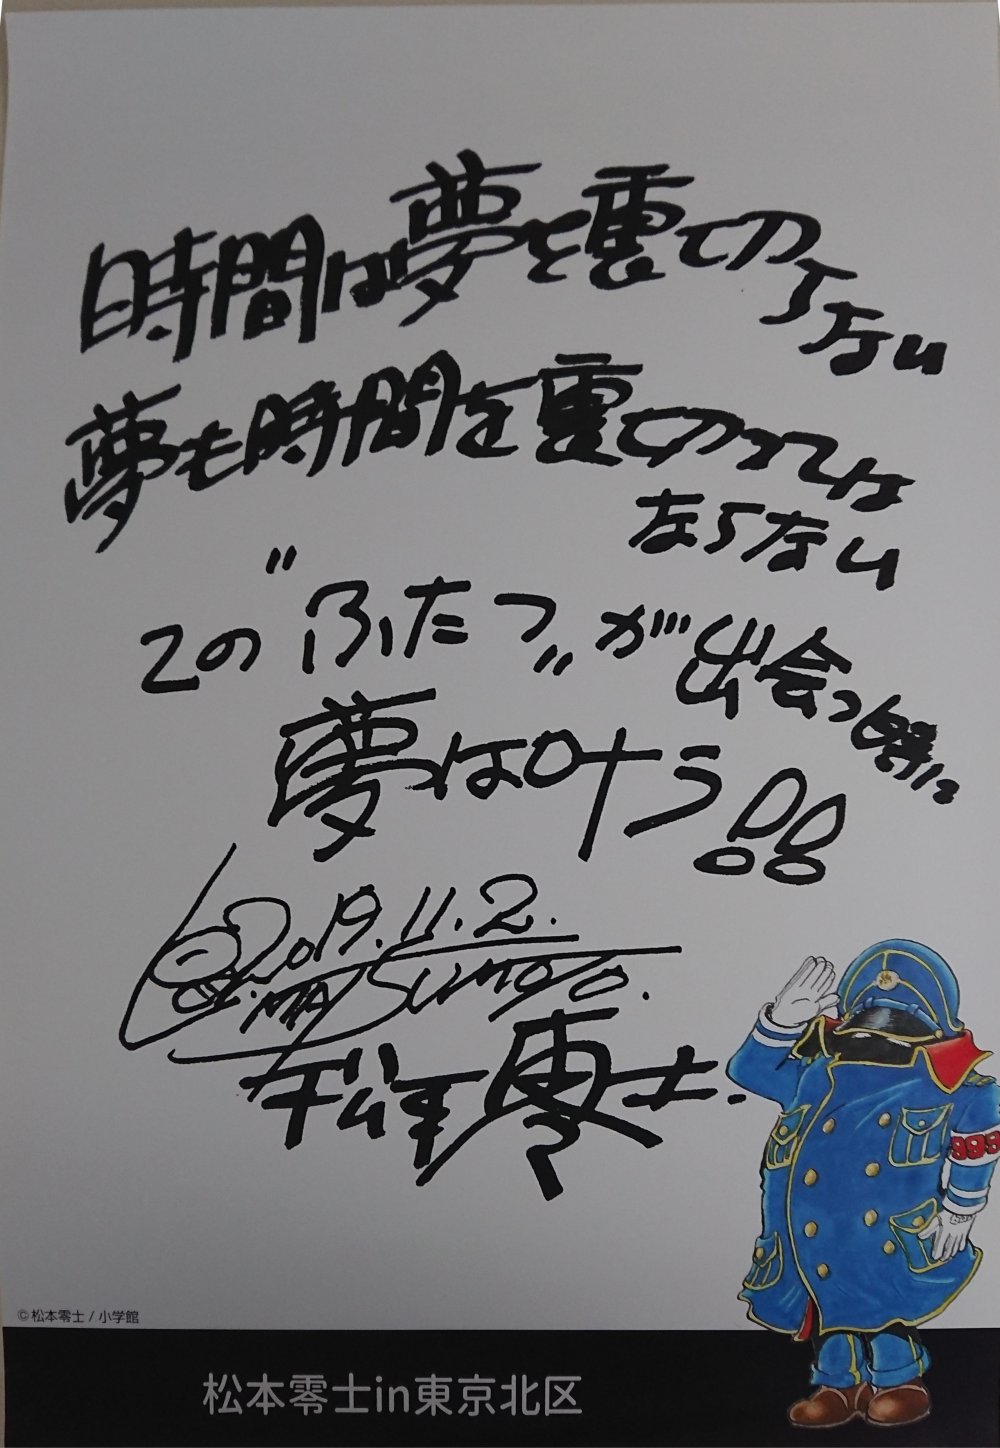 時間は夢を裏切らない
夢も時間を裏切っては
ならない
この〝ふたつ〟が出会う時に
夢は叶う!!
2019.11.2.
MATSUMOTO.
松本零士.
999
©松本零士 / 小学館
松本零士in東京北区